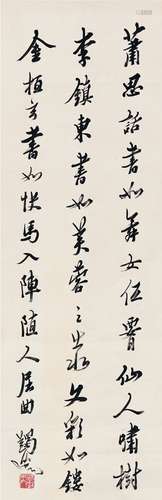 蕭思話書如舞女低腰仙人嘯樹
李鎮東書如芙蓉之出水文彩如鏤
金桓玄書如快馬入陣随人屈曲